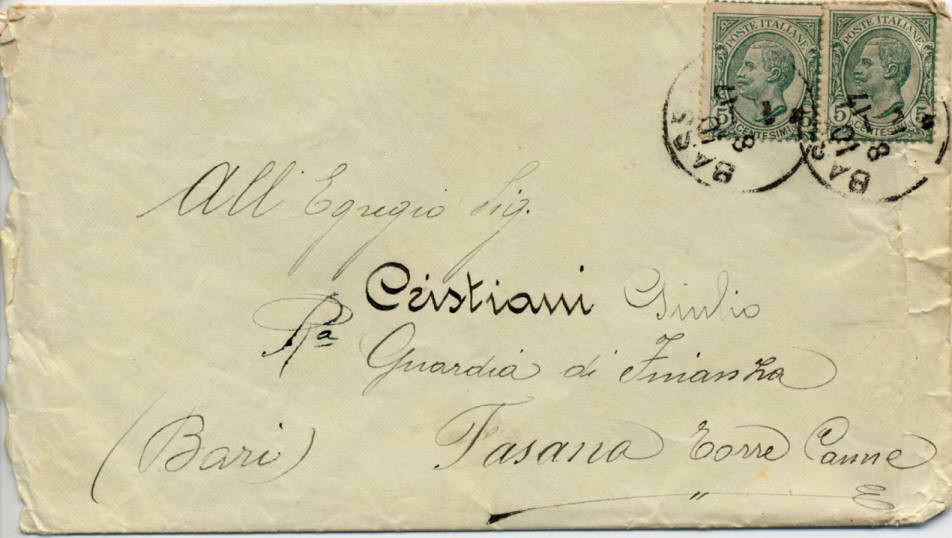 POSTE ITALIANE
5 CENTESIMI 5
POSTE ITALIANE
5 CENTESIMI
BASS
8 10 17
BASS
8 10 17
All' Egregio Sig.
Cristiani Giulio
Rª Guardia di Finanza
(Bari) Fasana Torre Canne